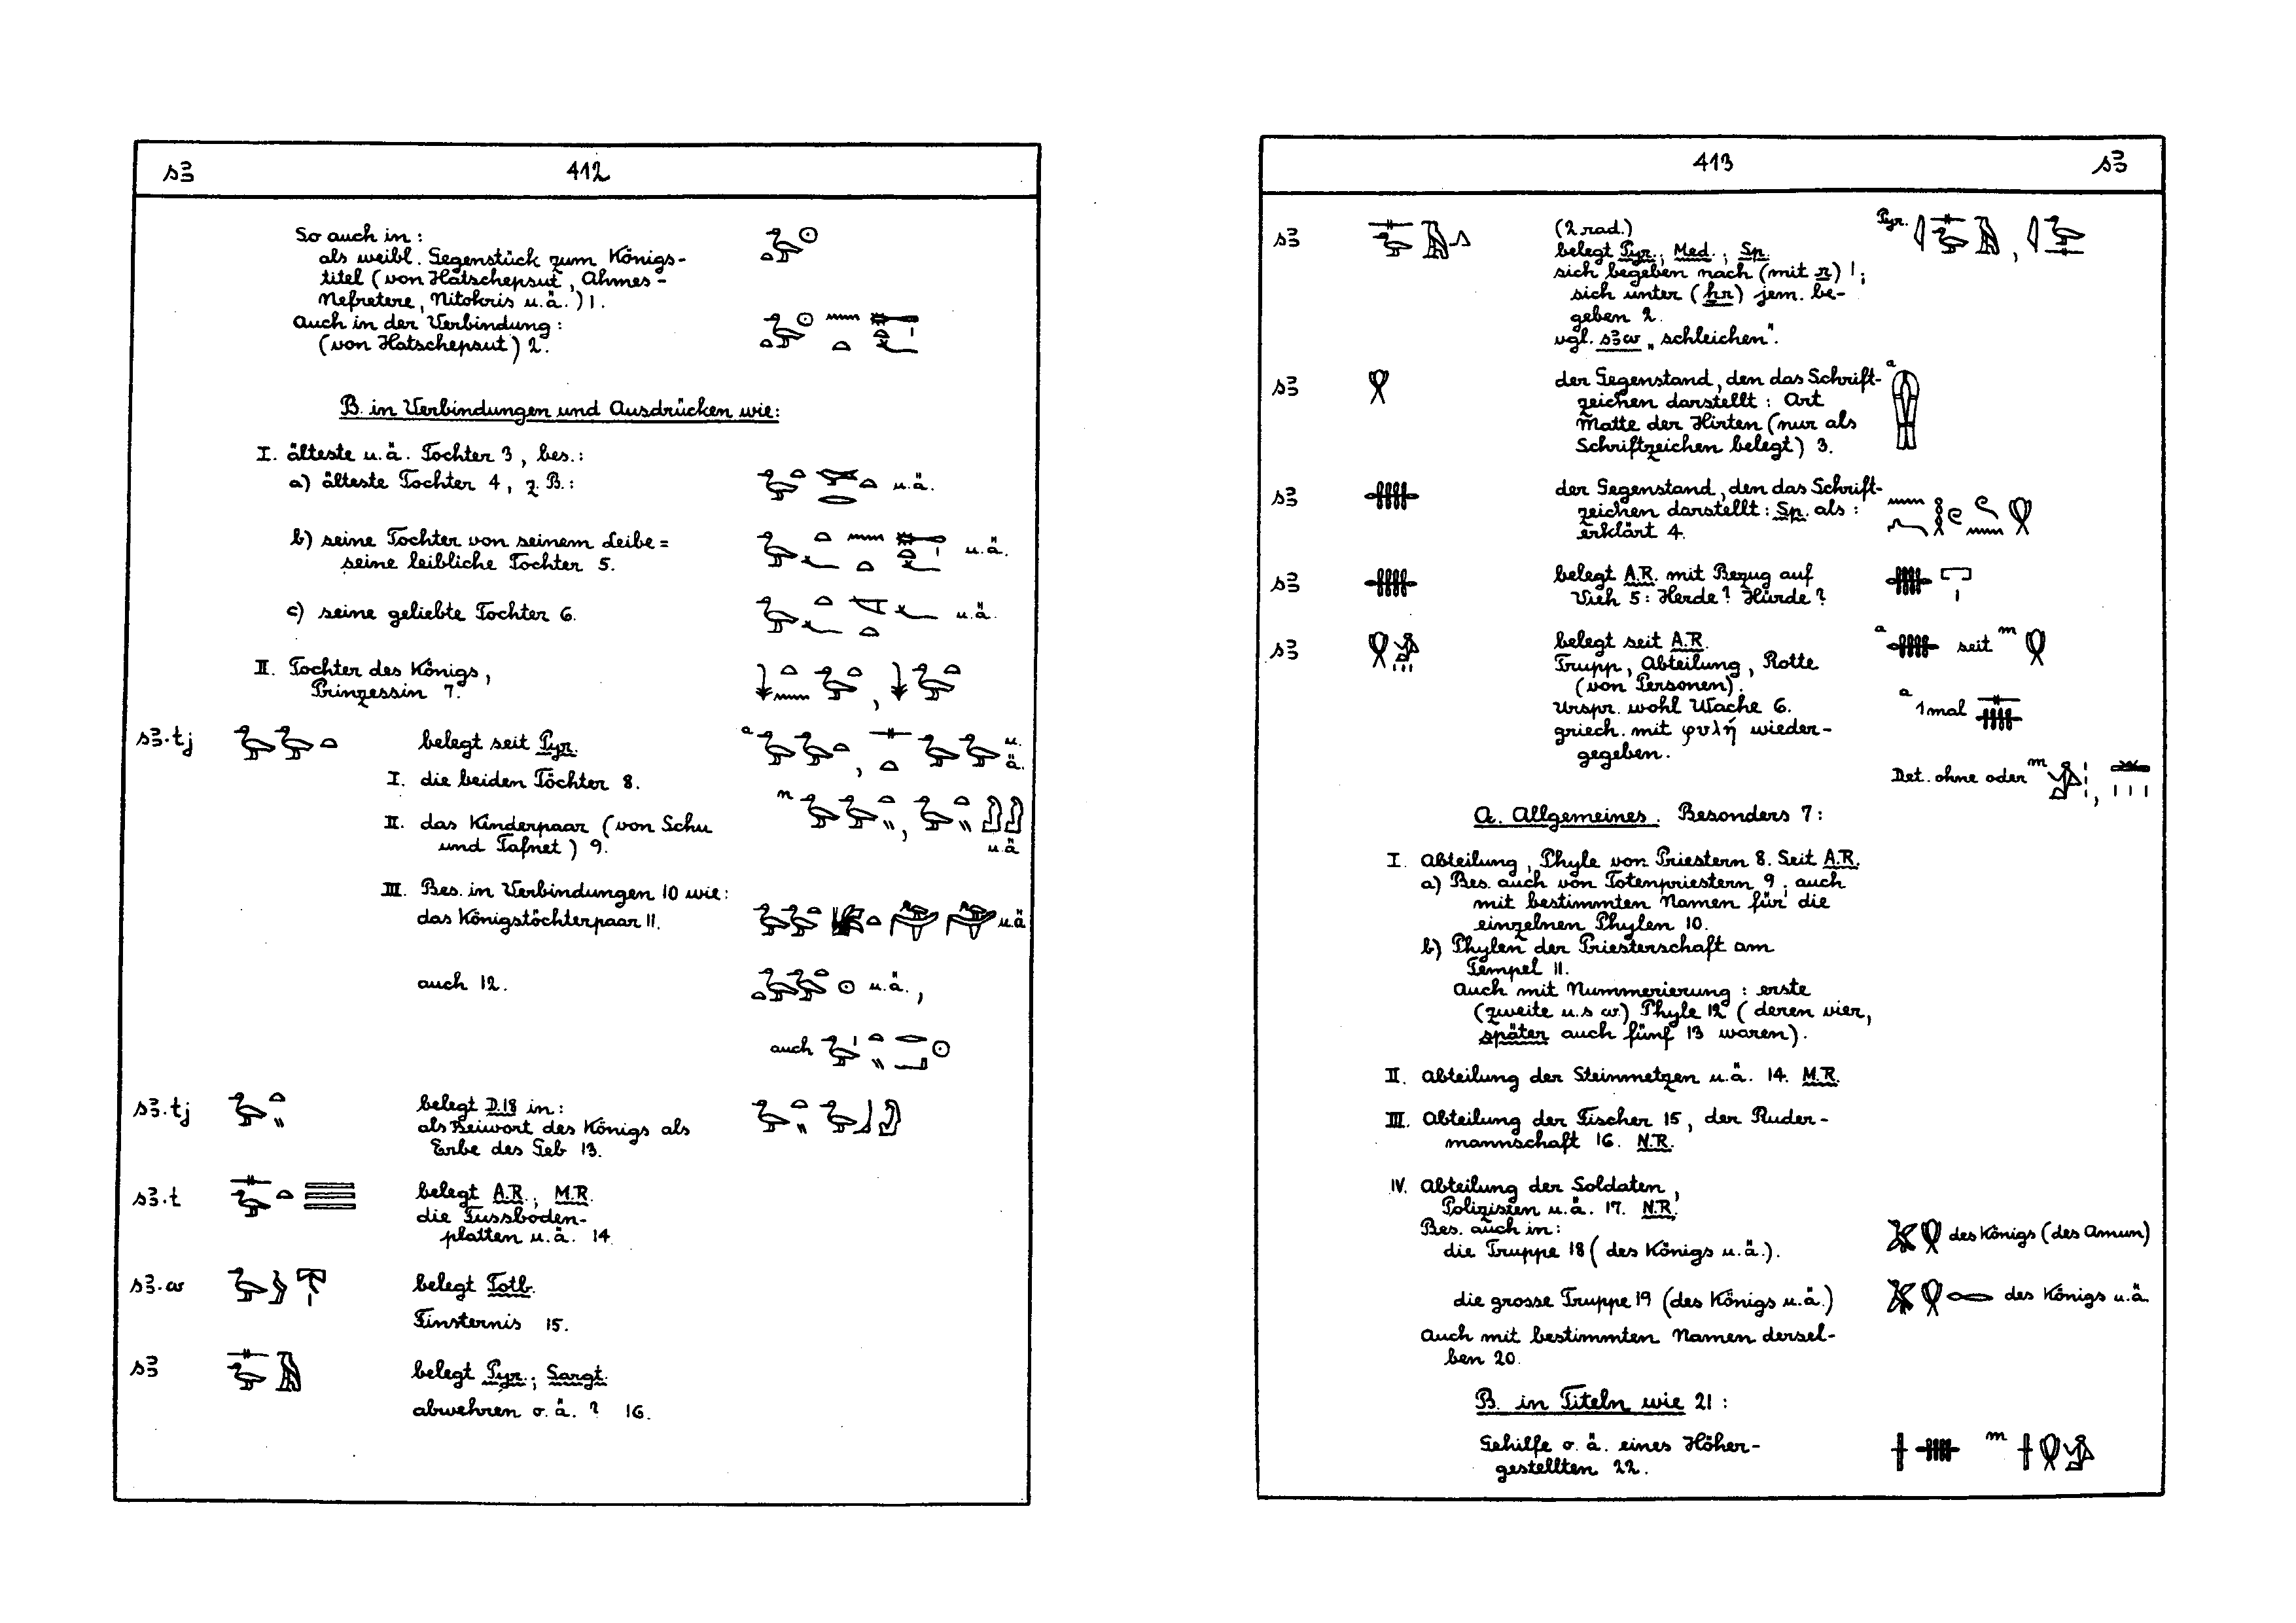 s3
412
So auch in:
als weibl. Gegenstück zum Königs-
titel (von Hatschepsut, Ahmes-
Nefretere, Nitokris u.ä.) 1.
Auch in der Verbindung:
(von Hatschepsut) 2.
B. in Verbindungen und Ausdrücken wie:
I. älteste u.ä. Tochter 3, bes.:
a) älteste Tochter 4, z.B.: u.ä.
b) seine Tochter von seinem Leibe = u.ä.
seine leibliche Tochter 5.
c) seine geliebte Tochter 6. u.ä.
II. Tochter des Königs,
Prinzessin 7.
s3.tj belegt seit Pyr. a u.ä.
I. die beiden Töchter 8.
II. das Kinderpaar (von Schu n
und Tafnet) 9. u.ä
III. Bes. in Verbindungen 10 wie:
das Königstöchterpaar 11. u.ä
auch 12. u.ä.,
auch
s3.tj belegt D.18 in:
als Beiwort des Königs als
Erbe des Geb 13.
s3.t belegt A.R.; M.R.
die Fussboden-
platten u.ä. 14
s3.w belegt Totb.
Finsternis 15.
s3 belegt Pyr.; Sargt.
abwehren o.ä.? 16.
413
s3
s3 (2 rad.) Pyr.
belegt Pyr.; Med.; Sp.
sich begeben nach (mit r) 1;
sich unter (hr) jem. be-
geben 2.
vgl. s3w „schleichen".
s3 der Gegenstand, den das Schrift- a
zeichen darstellt: Art
Matte der Hirten (nur als
Schriftzeichen belegt) 3.
s3 der Gegenstand, den das Schrift-
zeichen darstellt: Sp. als:
erklärt 4.
s3 belegt A.R. mit Bezug auf
Vieh 5: Herde? Hürde?
s3 belegt seit A.R. a seit m
Trupp, Abteilung, Rotte
(von Personen).
Urspr. wohl Wache 6. a 1mal
griech. mit φυλή wieder-
gegeben.
Det. ohne oder m
A. Allgemeines. Besonders 7:
I. Abteilung, Phyle von Priestern 8. Seit A.R.
a) Bes. auch von Totenpriestern 9; auch
mit bestimmten Namen für die
einzelnen Phylen 10.
b) Phylen der Priesterschaft am
Tempel 11.
Auch mit Nummerierung: erste
(zweite u.s.w.) Phyle 12 (deren vier,
später auch fünf 13 waren).
II. Abteilung der Steinmetzen u.ä. 14. M.R.
III. Abteilung der Fischer 15, der Ruder-
mannschaft 16. N.R.
IV. Abteilung der Soldaten,
Polizisten u.ä. 17. N.R.
Bes. auch in:
die Truppe 18 (des Königs u.ä.). des Königs (des Amun)
die grosse Truppe 19 (des Königs u.ä.) des Königs u.ä.
Auch mit bestimmten Namen dersel-
ben 20.
B. in Titeln wie 21:
Gehilfe o.ä. eines Höher- m
gestellten 22.